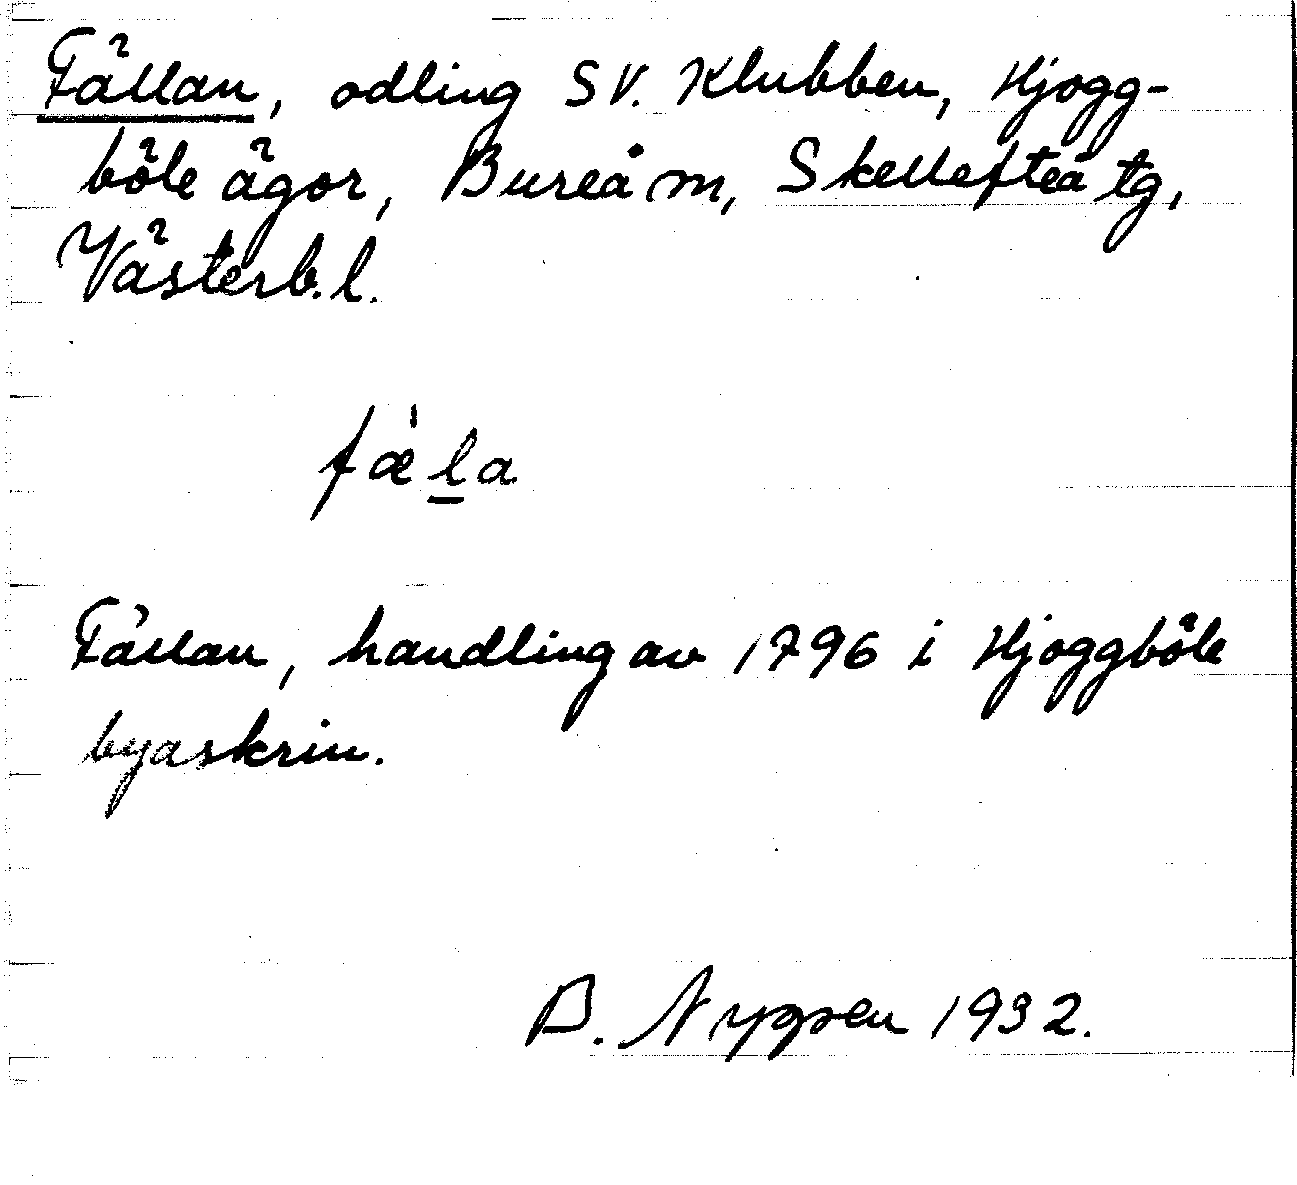 Fällan, odling SV. Klubben, Hjogg-
böle ägor, Bureå m, Skellefteå tg,
Västerb.l.
fæ̀l̲a
Fällan, handling av 1796 i Hjoggböle
byaskrin.
B. 1932.